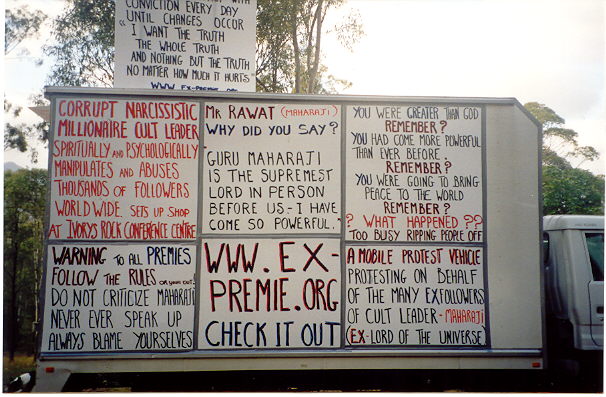 CONVICTION EVERY DAY
UNTIL CHANGES OCCUR
"I WANT THE TRUTH
THE WHOLE TRUTH
AND NOTHING BUT THE TRUTH
NO MATTER HOW MUCH IT HURTS
WWW.EX-PREMIE.ORG
CORRUPT NARCISSISTIC
MILLIONAIRE CULT LEADER
SPIRITUALLY AND PSYCHOLOGICALLY
MANIPULATES AND ABUSES
THOUSANDS OF FOLLOWERS
WORLD WIDE. SETS UP SHOP
AT IVORYS ROCK CONFERENCE CENTRE
MR RAWAT (MAHARAJI)
WHY DID YOU SAY?
GURU MAHARAJI
IS THE SUPREMEST
LORD IN PERSON
BEFORE US.- I HAVE
COME SO POWERFUL.
YOU WERE GREATER THAN GOD
REMEMBER?
YOU HAD COME MORE POWERFUL
THAN EVER BEFORE.
REMEMBER?
YOU WERE GOING TO BRING
PEACE TO THE WORLD
REMEMBER?
? WHAT HAPPENED ??
TOO BUSY RIPPING PEOPLE OFF
WARNING TO ALL PREMIES
FOLLOW THE RULES OR YOUR OUT.
DO NOT CRITICIZE MAHARAJI
NEVER EVER SPEAK UP
ALWAYS BLAME YOURSELVES
WWW.EX-
PREMIE.ORG
CHECK IT OUT
A MOBILE PROTEST VEHICLE
PROTESTING ON BEHALF
OF THE MANY EXFOLLOWERS
OF CULT LEADER-MAHARAJI
(EX-LORD OF THE UNIVERSE)